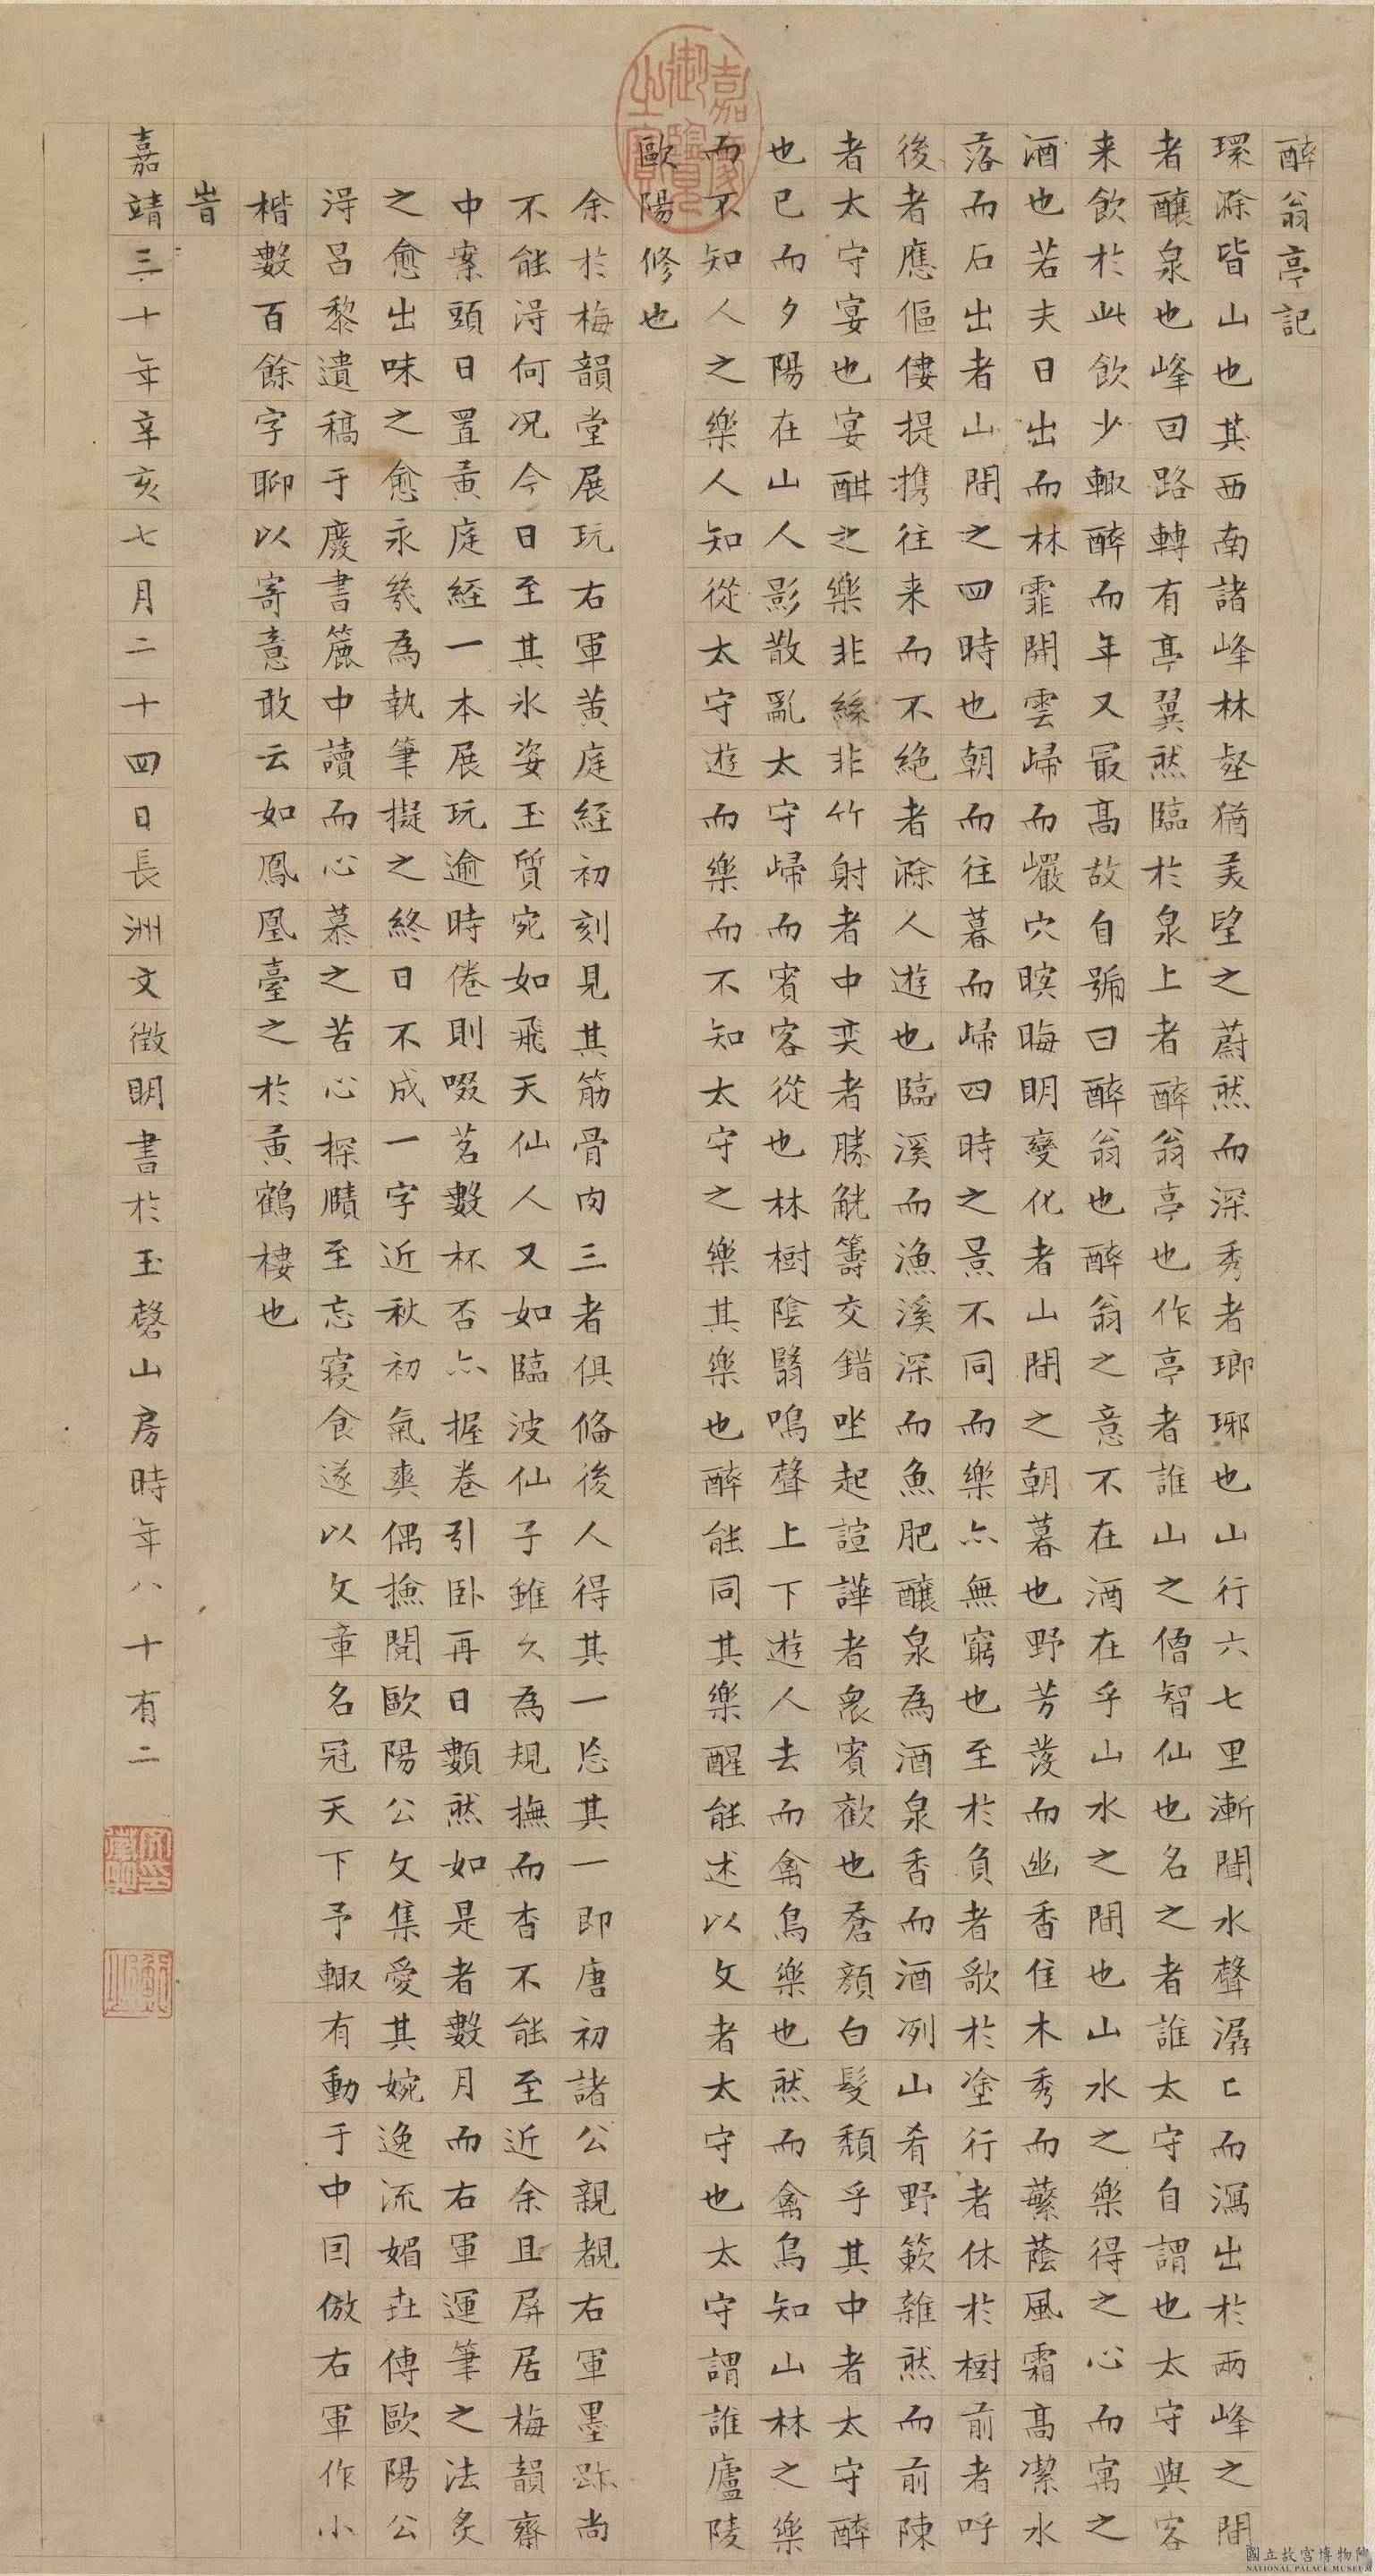 醉翁亭記
環滁皆山也其西南諸峰林壑猶美望之蔚然而深秀者瑯琊也山行六七里漸聞水聲潺〻而瀉出於兩峰之間
者釀泉也峰回路轉有亭翼然臨於泉上者醉翁亭也作亭者誰山之僧智仙也名之者誰太守自謂也太守與客
来飲於此飲少輙醉而年又最高故自號曰醉翁也醉翁之意不在酒在乎山水之間也山水之樂得之心而寓之
酒也若夫日出而林霏開雲歸而巖穴暝晦明變化者山間之朝暮也野芳發而幽香佳木秀而繁蔭風霜高潔水
落而石出者山間之四時也朝而往暮而歸四時之景不同而樂亦無窮也至於負者歌於塗行者休於樹前者呼
後者應傴僂提攜往来而不絶者滁人遊也臨溪而漁溪深而魚肥釀泉為酒泉香而酒冽山肴野簌雜然而前陳
者太守宴也宴酣之樂非絲非竹射者中奕者勝觥籌交錯坐起諠譁者衆賓歡也蒼顏白髮頹乎其中者太守醉
也已而夕陽在山人影散亂太守歸而賓客從也林樹陰翳鳴聲上下遊人去而禽鳥樂也然而禽鳥知山林之樂
而不知人之樂人知從太守遊而樂而不知太守之樂其樂也醉能同其樂醒能述以文者太守也太守謂誰廬陵
歐陽修也
余於梅韻堂展玩右軍黃庭經初刻見其筋骨肉三者俱俻後人得其一忘其一即唐初諸公親覩右軍墨跡尚
不能淂何况今日至其氷姿玉質宛如飛天仙人又如臨波仙子雖久為規撫而杳不能至近余且屏居梅韻齋
中案頭日置黃庭經一本展玩逾時倦則啜茗數杯否亦握卷引卧再日類然如是者數月而右軍運筆之法炙
之愈出味之愈永幾為執筆擬之終日不成一字近秋初氣爽偶撿閱歐陽公文集愛其婉逸流媚世傳歐陽公
淂昌黎遺稿于廢書簏中讀而心慕之苦心探賾至忘寢食遂以文章名冠天下予輙有動于中因倣右軍作小
楷數百餘字聊以寄意敢云如鳳凰臺之於黃鶴樓也
旹
嘉靖三十年辛亥七月二十四日長洲文徵明書於玉磬山房時年八十有二
嘉慶御覽之寶
國立故宮博物院
NATIONAL PALACE MUSEUM